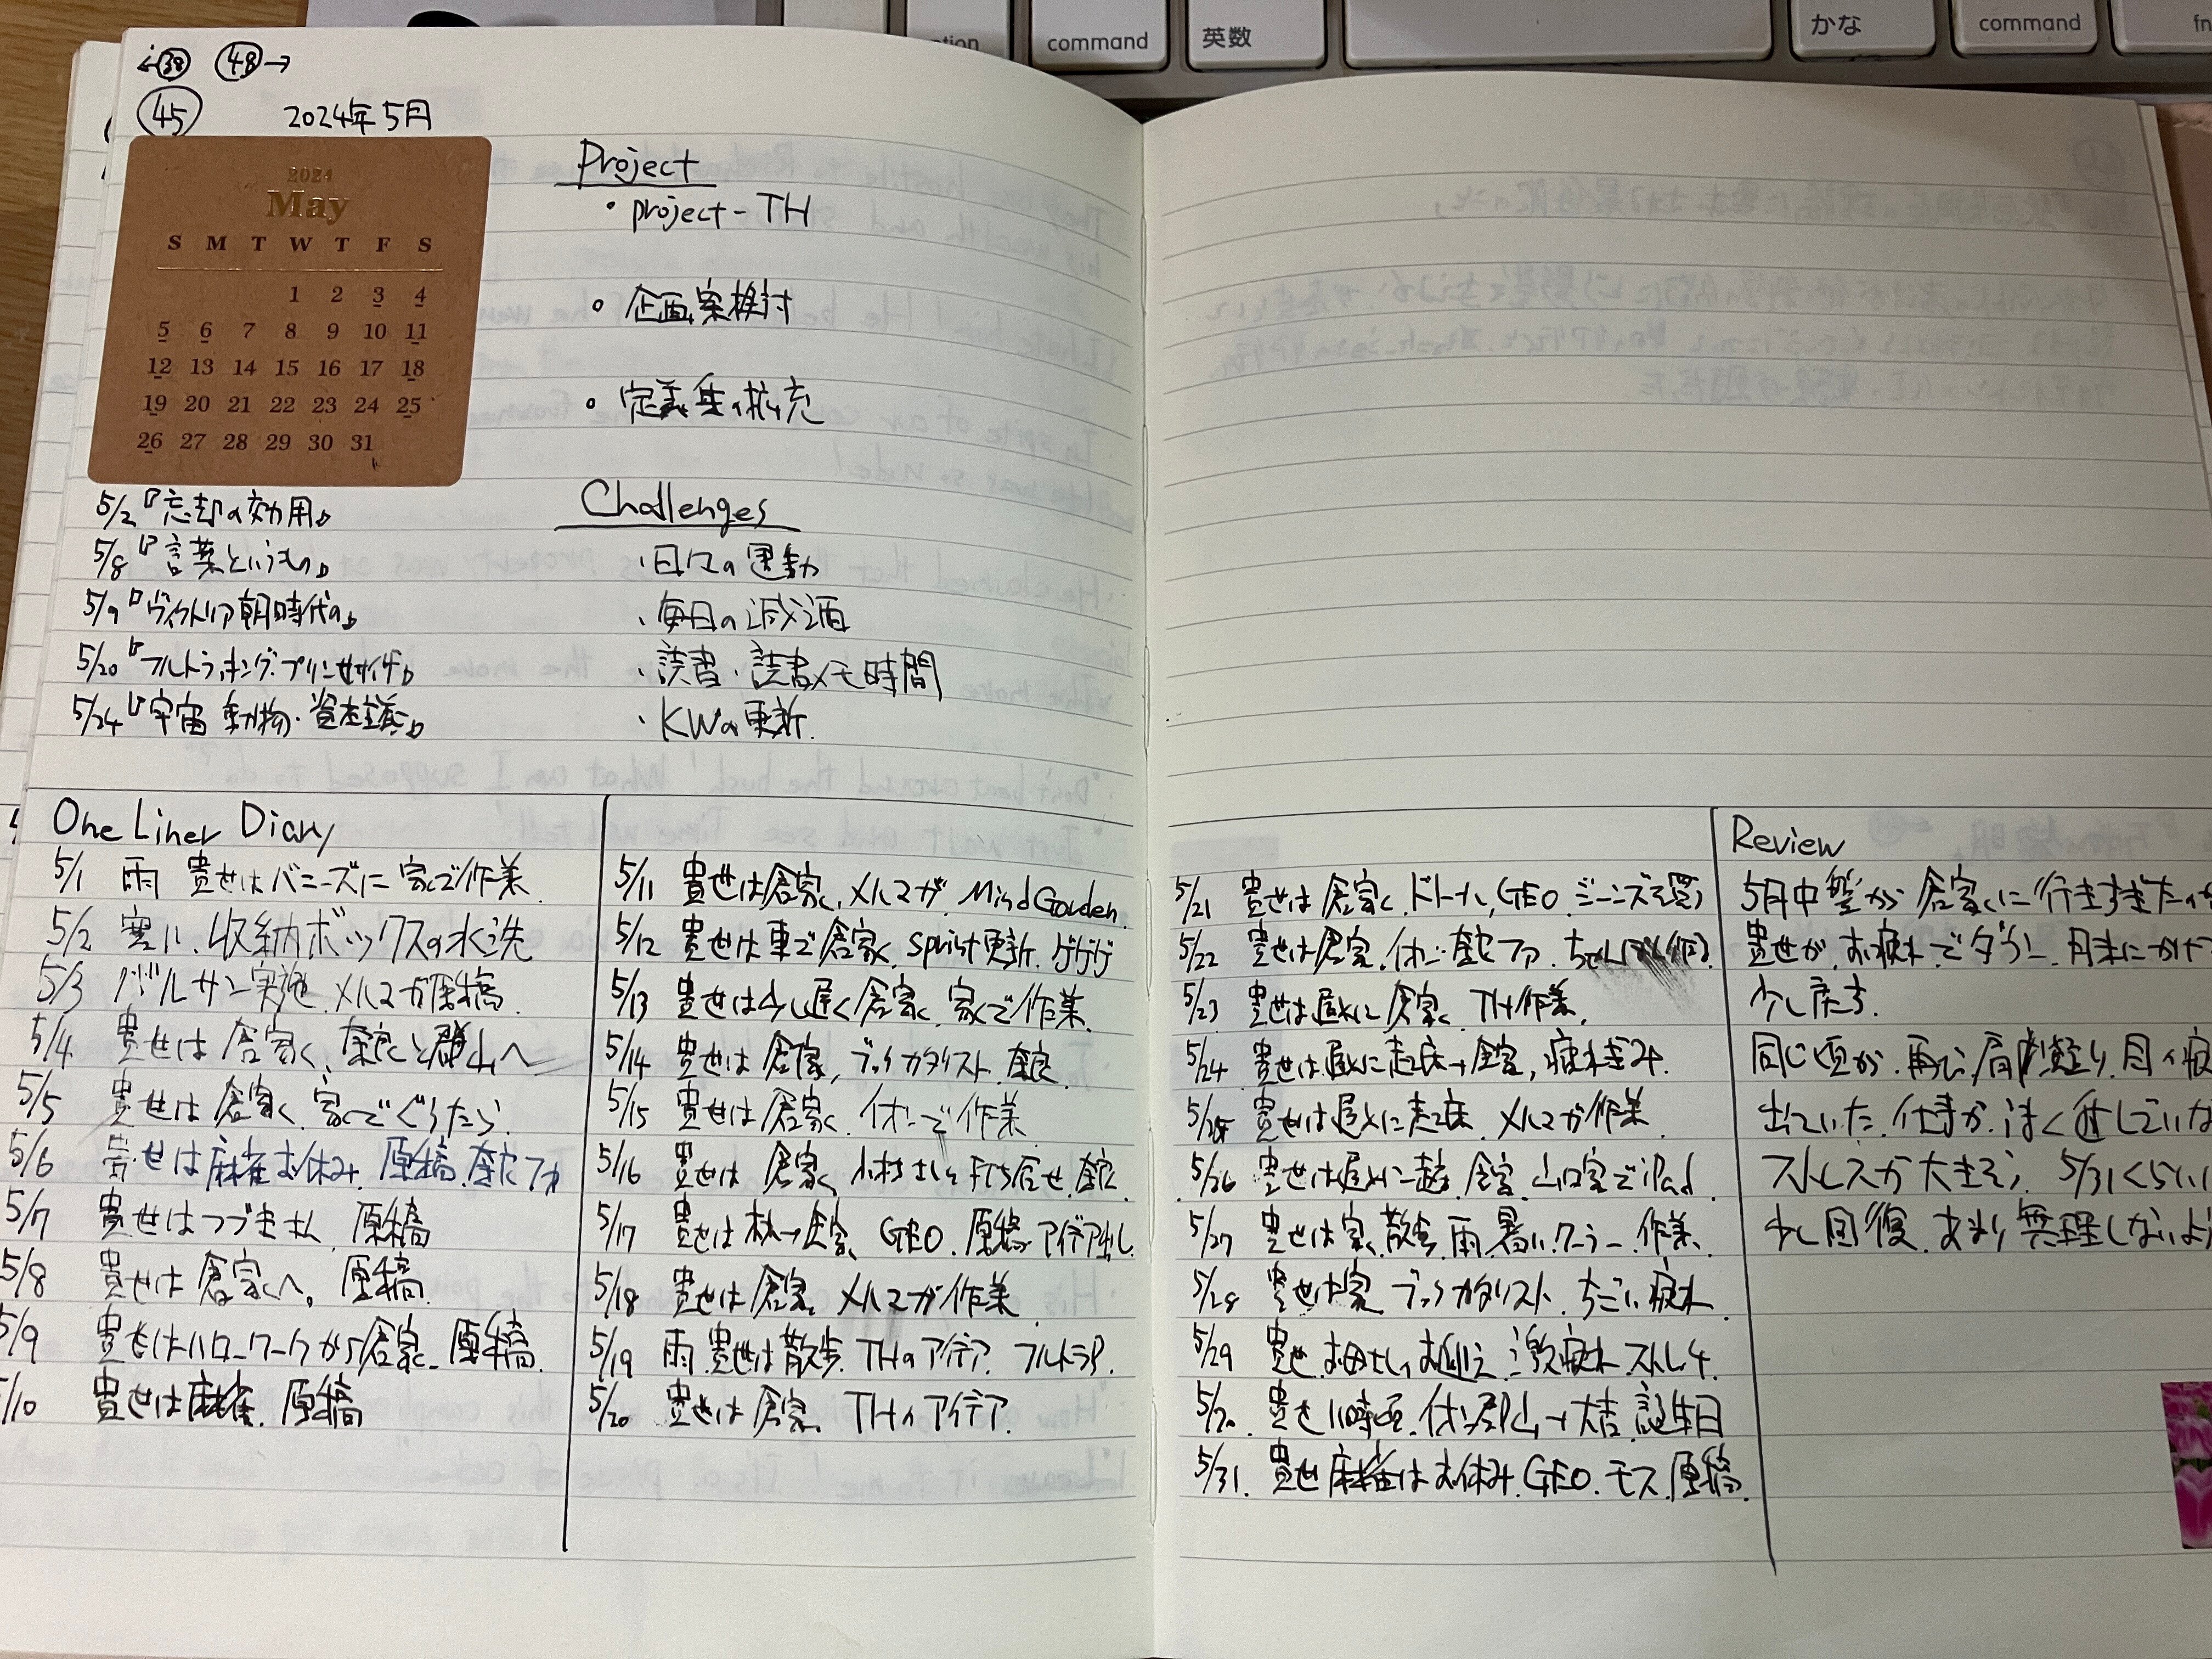 tion
command
英数
かな
command
fn
←38 48→
45 2024年5月
2024
May
S M T W T F S
1 2 3 4
5 6 7 8 9 10 11
12 13 14 15 16 17 18
19 20 21 22 23 24 25
26 27 28 29 30 31
Project
・project-TH
・企画案検討
・定義集の拡充
5/2『忘却の効用』
5/8『言葉というもの』
5/9『ヴィクトリア朝時代の』
5/20『フルトラッキング・プリンセサイザ』
5/24『宇宙 動物・資本主義』
Challenges
・日々の運動
・毎日の減酒
・読書・読書メモ時間
・KWの更新
One Liner Diary
5/1 雨 貴せはバニーズに 家で作業
5/2 寒い、収納ボックスの水洗
5/3 バルサン実施 メルマガ原稿
5/4 貴せは倉家く、奈良と郡山へ
5/5 貴せは倉家く 家でぐうたら
5/6 貴せは麻雀お休み 原稿
5/7 貴せはつづきさん 原稿
5/8 貴せは倉家くへ。原稿
5/9 貴せはハローワークから倉家 原稿
5/10 貴せは麻雀、原稿
5/11 貴せは倉家く、メルマガ、Mind Garden
5/12 貴せは車で倉家く sprint更新、ゲゲゲ
5/13 貴せは少し遅く倉家く、家で作業
5/14 貴せは倉家、ブックカタリスト
5/15 貴せは倉家く、イオンで作業
5/16 貴せは倉家く
5/17 貴せは 倉家 GEO、原稿アイデア出し
5/18 貴せは倉家、メルマガ作業
5/19 雨 貴せは散歩、THのアイデア フルトラP.
5/20 貴せは倉家、THのアイデア
5/21 貴せは倉家く、ドトール、GEO ジーンズを買う
5/22 貴せは倉家
5/23 貴せは遅めに倉家く TH作業
5/24 貴せは遅めに起床→倉家、疲れぎみ
5/25 貴せは遅めに起床、メルマガ作業
5/26 貴せは遅めに起、倉家 山口家でiPad
5/27 貴せは家、散歩、雨、暑い、クーラー、作業
5/28 貴せは家 ブックカタリスト、すごい疲れ
5/29 貴せ お母さんのお迎え 激疲れ
5/30 貴せ 11時 イオン郡山→大吉 誕生日
5/31 貴せ 麻雀はお休み、GEO、モス、原稿
Review
5月中盤から倉家くに行きすぎた
貴せが、お疲れでダウン、月末にかけ
少し戻す。
同じ頃から、再び、肩 目の疲
出ていた、仕事が、うまく 進していな
ストレスが大きそう、5/31くらい
少し回復、あまり無理しないよ